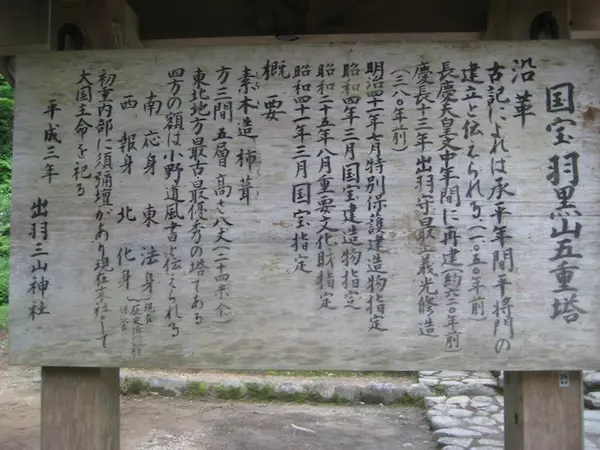 国宝羽黒山五重塔
沿革
古記によれば承平年間平将門の
建立と伝えられる(一〇五〇年前)
長慶天皇文中年間に再建(約六二〇年前)
慶長十三年出羽守最上義光修造
(三八〇年前)
明治四十一年七月特別保護建造物指定
昭和四年三月国宝建造物指定
昭和二十五年八月重要文化財指定
昭和四十一年三月国宝指定
概要
素木造柿葺
方三間五層高さ八丈(二十四米余)
東北地方最古最優秀の塔である
四方の額は小野道風書と伝えられる
南応身東法身
西報身北化身
(現在
初重内部に須弥壇があり現在末社として
大国主命を祀る
平成三年 出羽三山神社